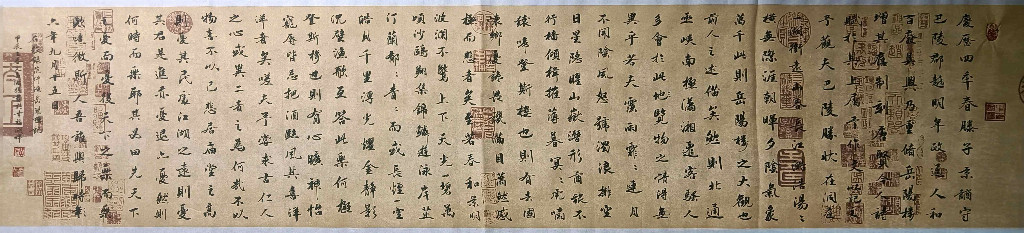 慶曆四年春滕子京謫守
巴陵郡越明年政通人和
百廢具興乃重修岳陽樓
增其舊制刻唐賢
於其上屬予作
予觀夫巴陵勝狀在洞庭
銜遠山吞長江湯湯
橫無際涯朝暉夕陰氣象
萬千此則岳陽樓之大觀也
前人之述備矣然則北通
巫峽南極瀟湘遷客騷人
多會於此地覽物之情得無
異乎若夫霪雨霏々連月
不開陰風怒號濁浪排空
日星隱曜山岳潛形商旅不
行檣傾楫摧薄暮冥々虎嘯
猿啼登斯樓也則有去國
懷鄉憂讒畏譏滿目蕭然感
極而悲者矣至若春和景明
波瀾不驚上下天光一碧萬
頃沙鷗翔集錦鱗游泳岸芷
汀蘭郁々青々而或長煙一空
皓月千里浮光耀金靜影
沉璧漁歌互答此樂何極
登斯樓也則有心曠神怡
寵辱皆忘把酒臨風其喜洋
洋者矣嗟夫予嘗求古仁人
之心或異二者之為何哉不以
物喜不以己悲居廟堂之高
則憂其民處江湖之遠則憂
其君是進亦憂退亦憂然則
何時而樂耶其必曰先天下
之憂而憂後天下之樂而樂
歟噫微斯人吾誰與歸時
六年九月十五日